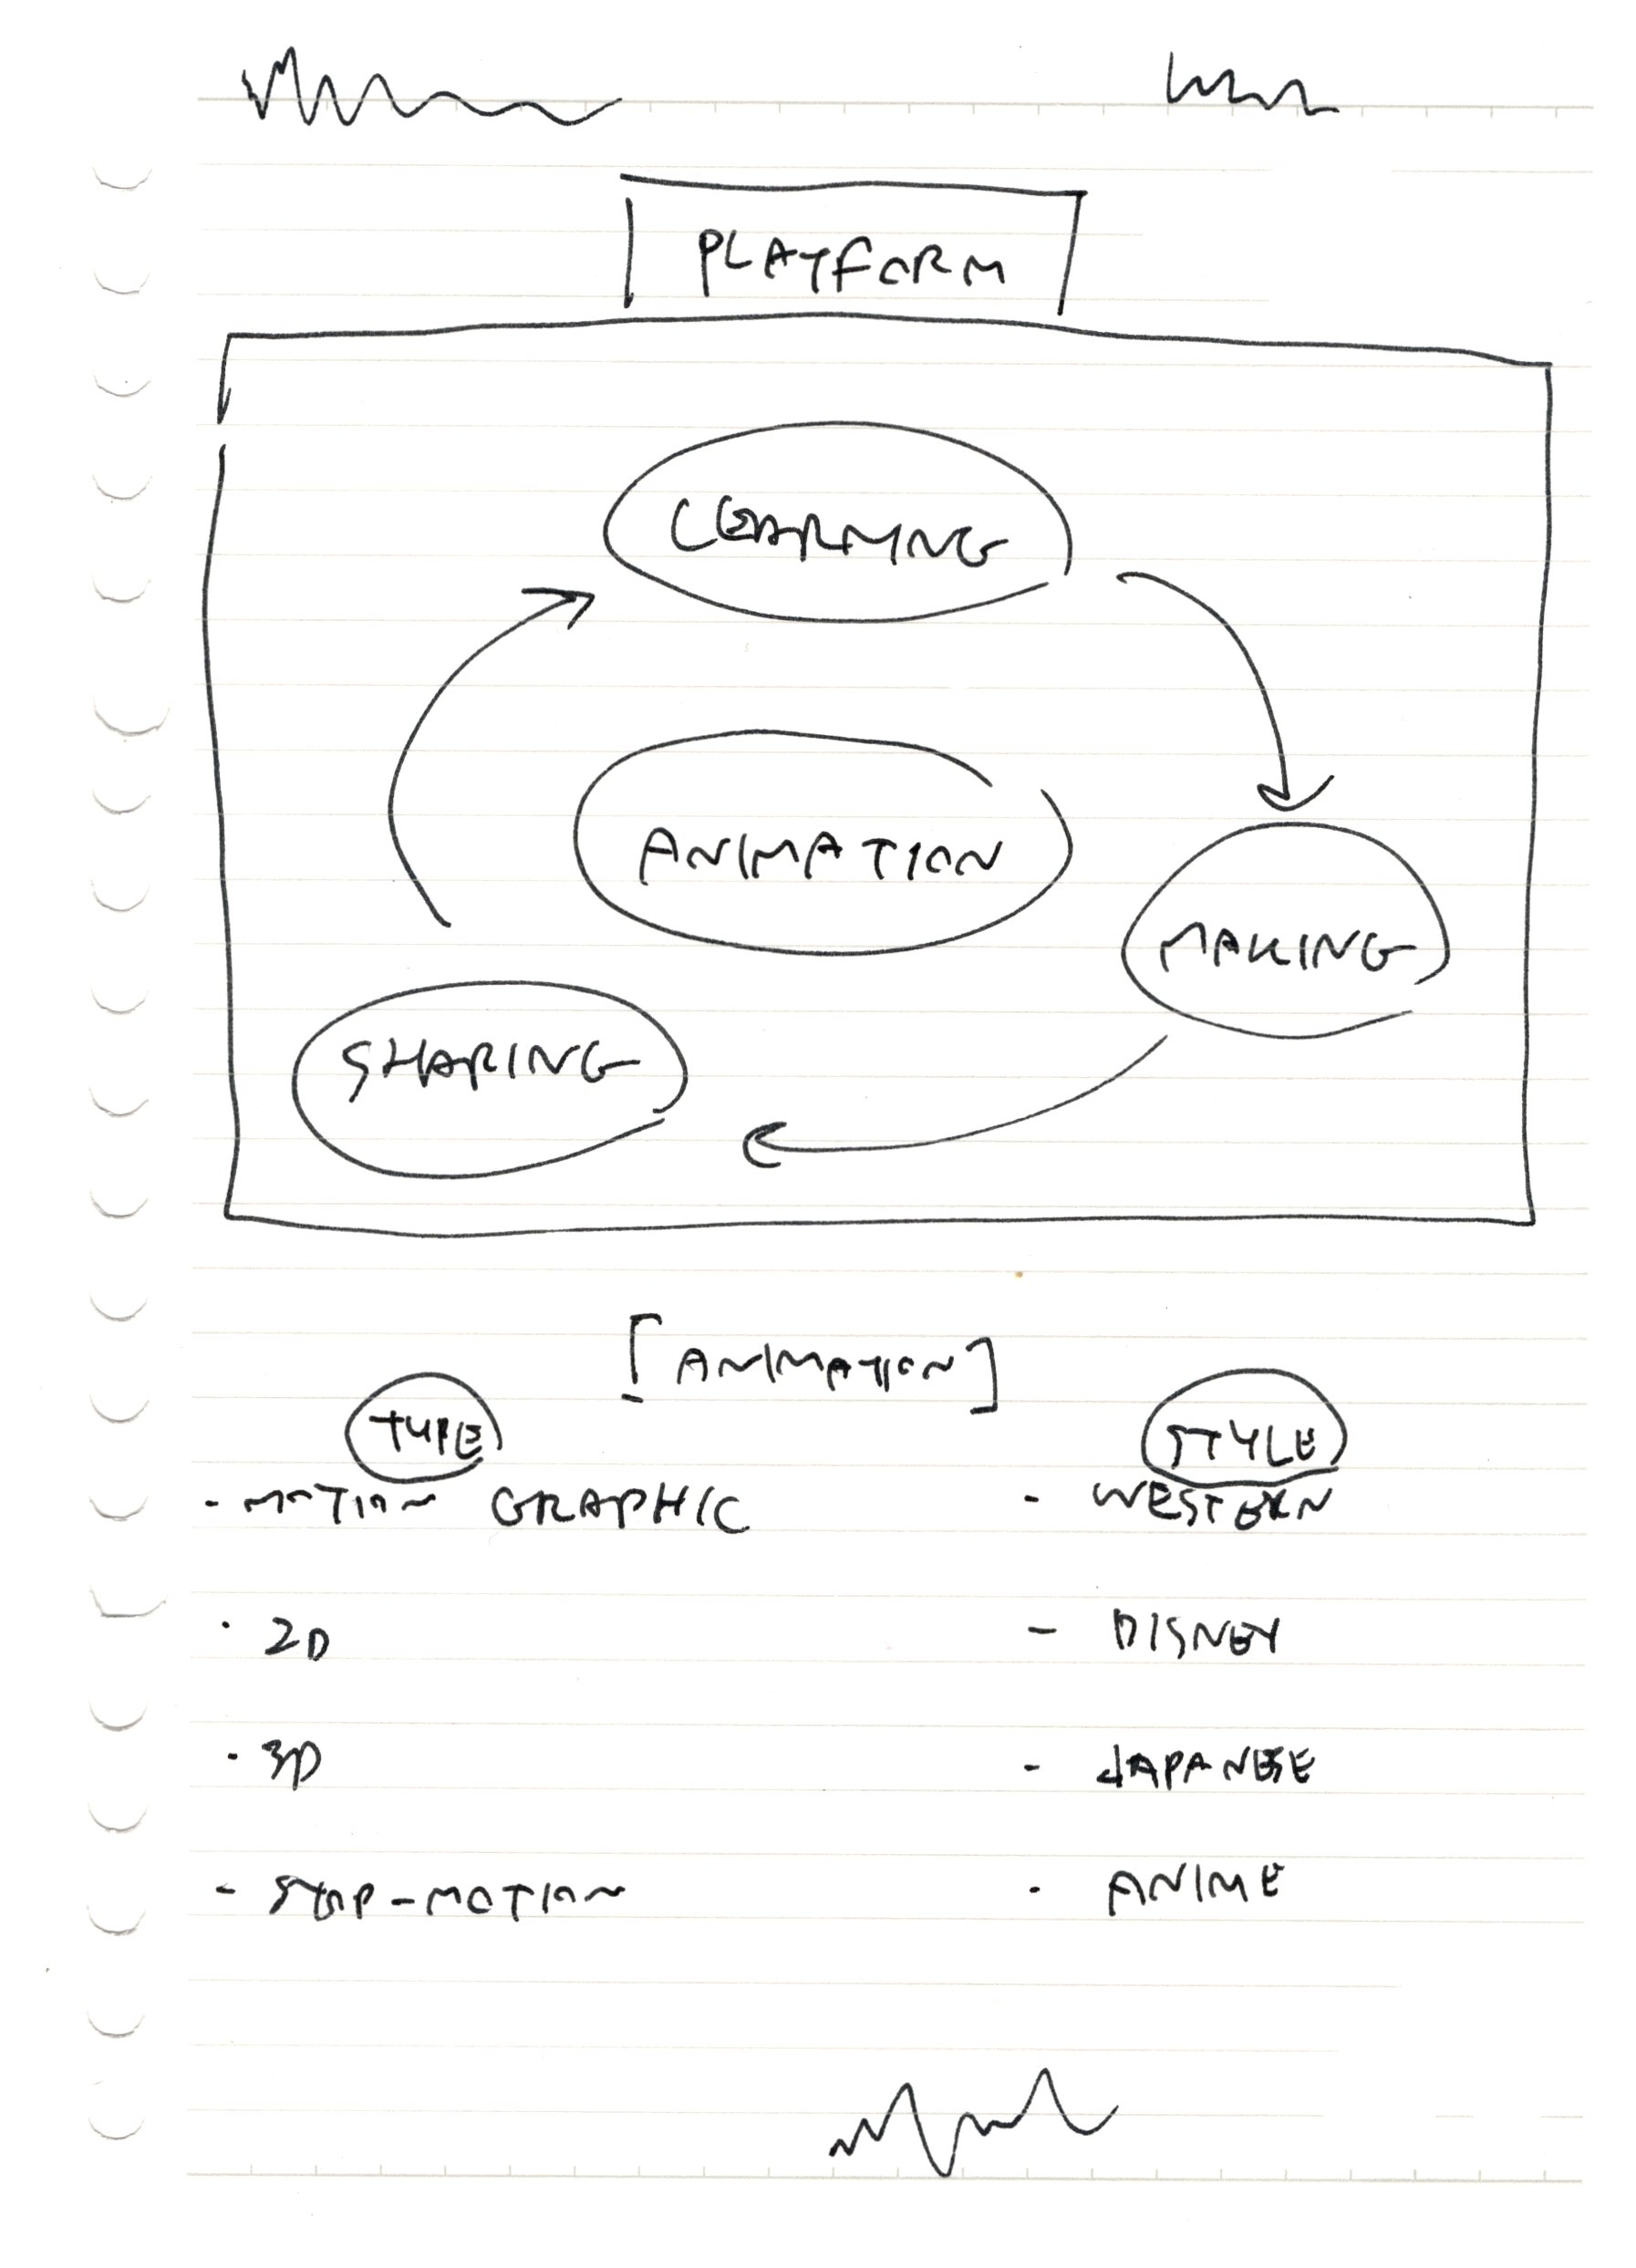 PLATFORM
LEARNING
ANIMATION
MAKING
SHARING
[ANIMATION]
TYPE STYLE
- MOTION GRAPHIC - WESTERN
· 2D - DISNEY
· 3D - JAPANESE
- STOP-MOTION - ANIME